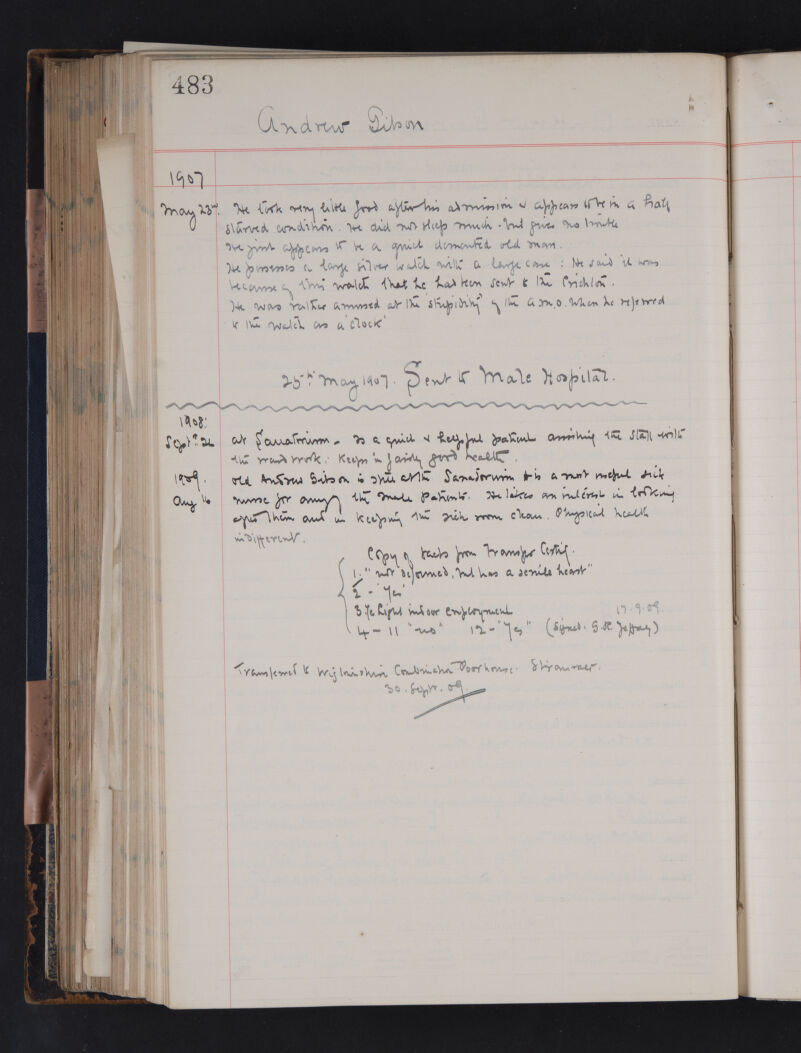 483
Andrew Gibson
1907
May 23rd. He took very little food after his admission & appears to be in a half
starved condition. He did not sleep much. but gives no trouble
He just appears to be a quiet demented old man.
He possesses a large silver watch with a large case : He said it was
because of this watch that he had been sent to the Crichton.
He was rather amused at the stupidity of the A.M.O. when he referred
to the watch as a 'clock'
25th May 1907. Sent to Male Hospital.
1908.
Sept. 22 At Sanatorium - Is a quiet & helpful patient assisting the staff with
the ward work. Keeps in fairly good health.
1909.
Aug 16 Old Andrew Gibson is still at the Sanatorium & is a most useful sick
nurse for any of the male patients. He takes an interest in looking
after them and in keeping the sick room clean. Physical health
indifferent.
Copy of facts from Transfer Certif.
1. "not deformed, but has a senile heart"
2 - "Yes"
3 Light indoor employment 17.9.09.
4 - 11 "no" 12 - "Yes" (Signed. Jeffrey)
Transferred to Wigtownshire Combination Poorhouse. Stranraer.
30. Sept. 09.